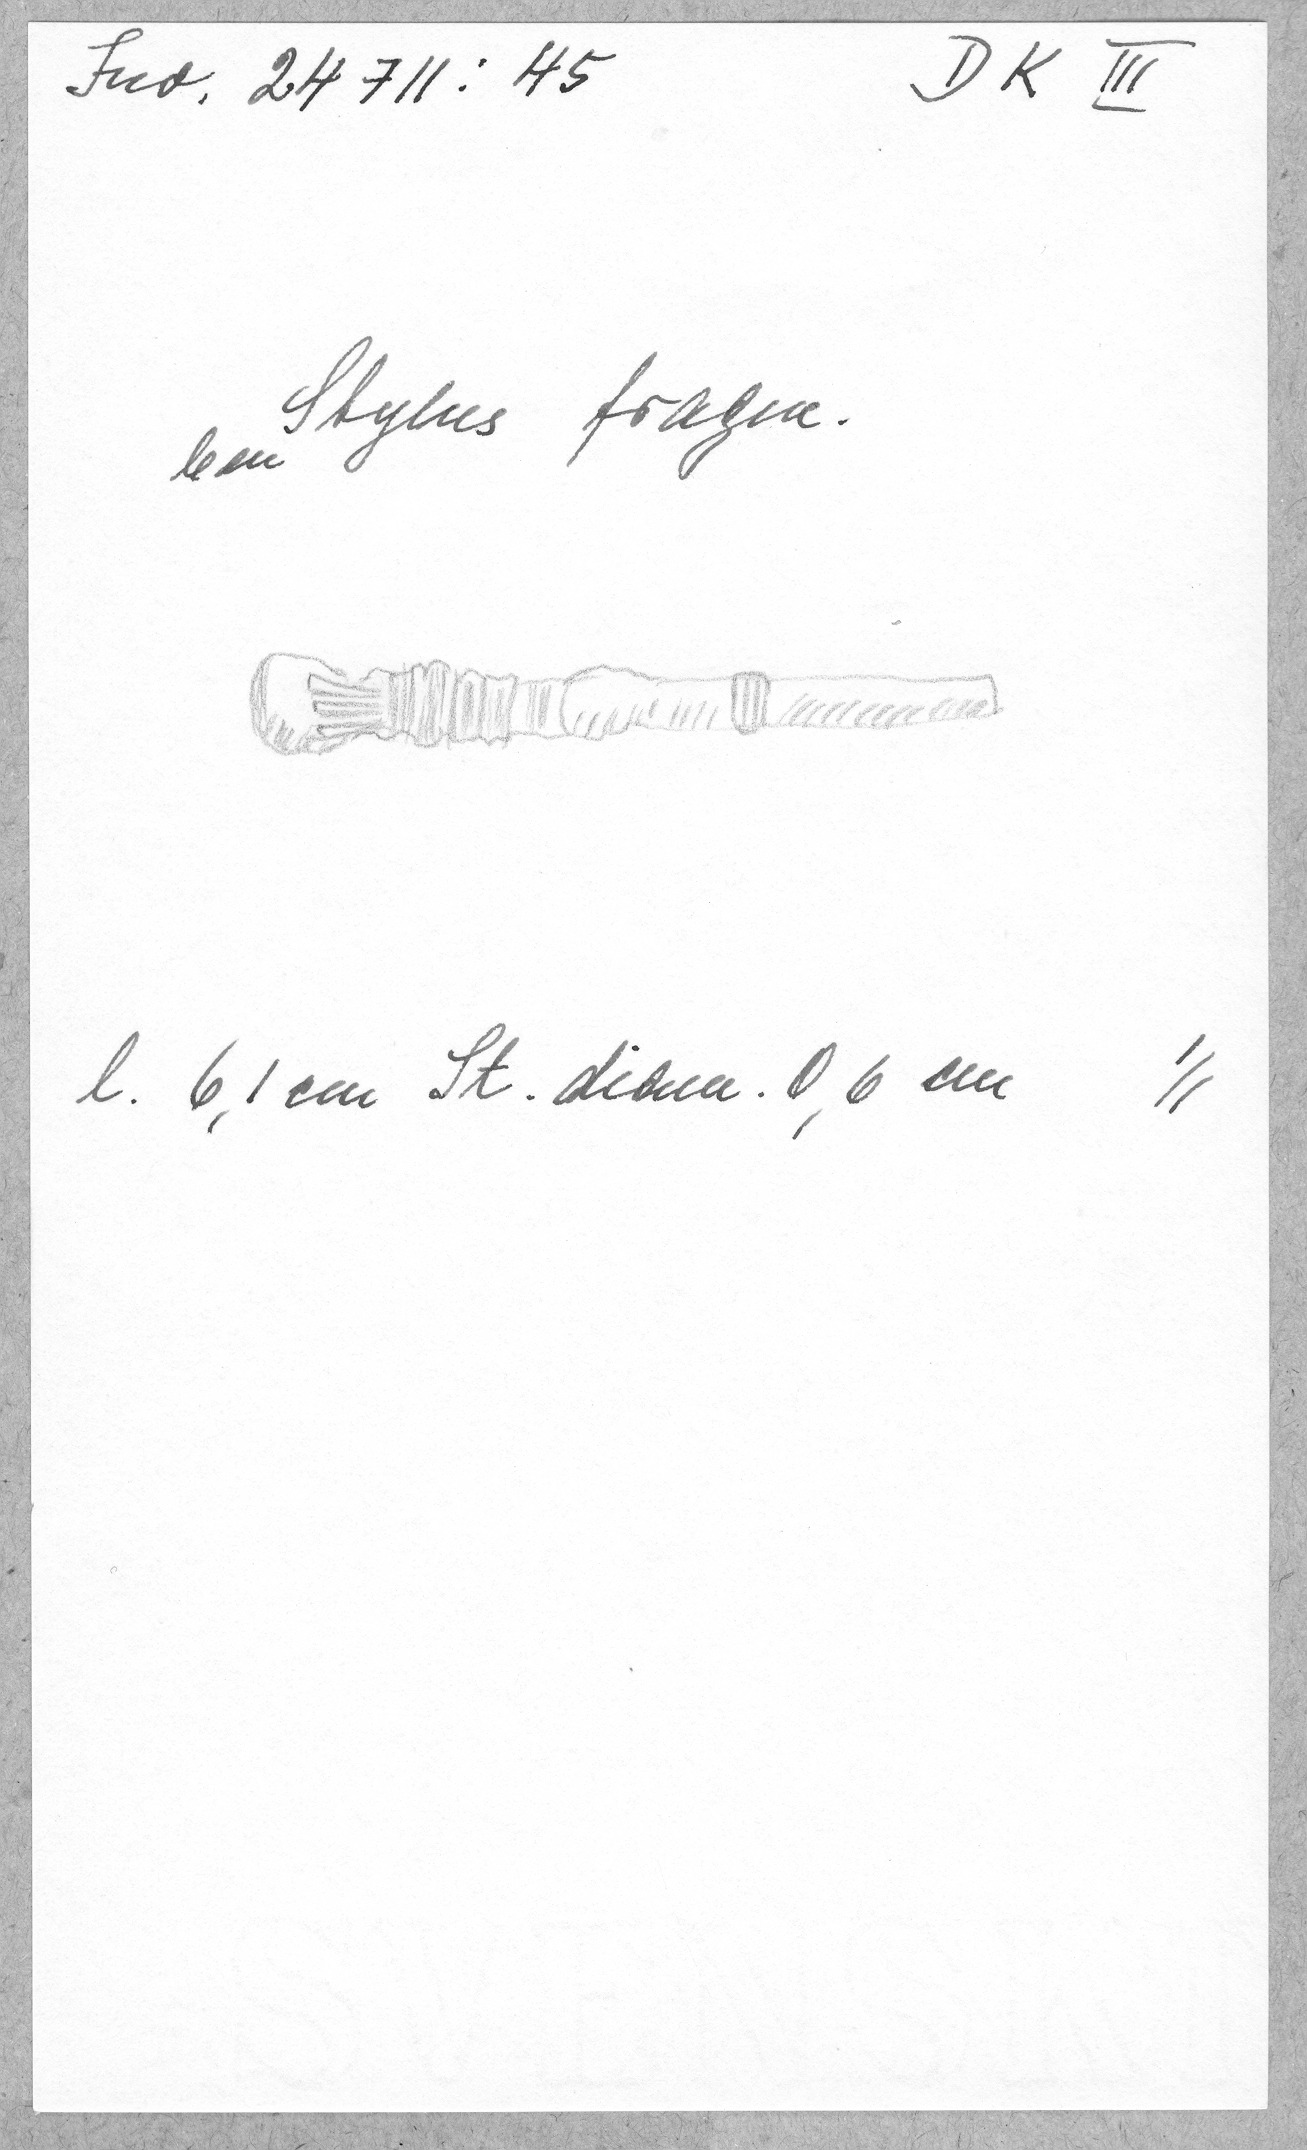 Inv. 24711:45 DK III
Stylus fragm.
ben
l. 6,1 cm St. diam. 0,6 cm 1/1